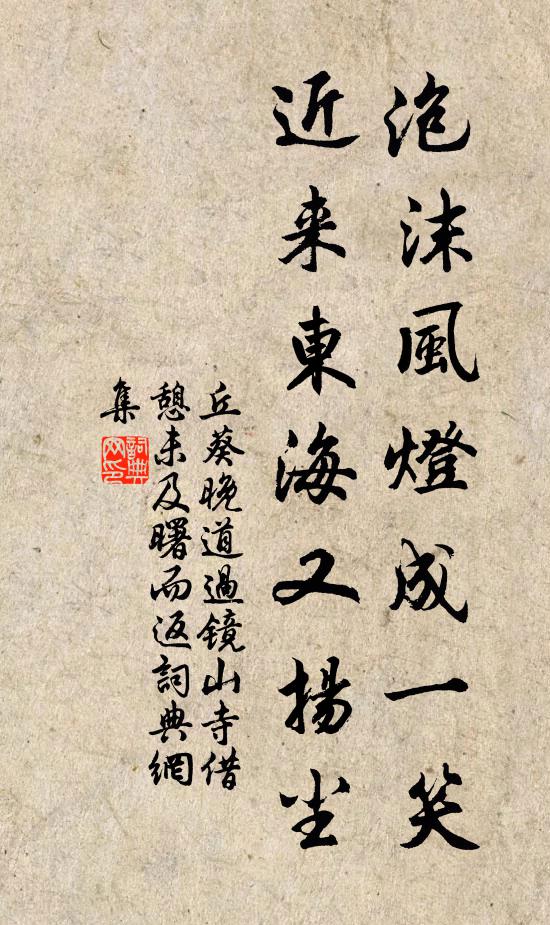 泡沫風燈成一笑
近来東海又揚尘
丘葵晚道過鏡山寺借
憩未及曙而返詞典網
集
詞典网印